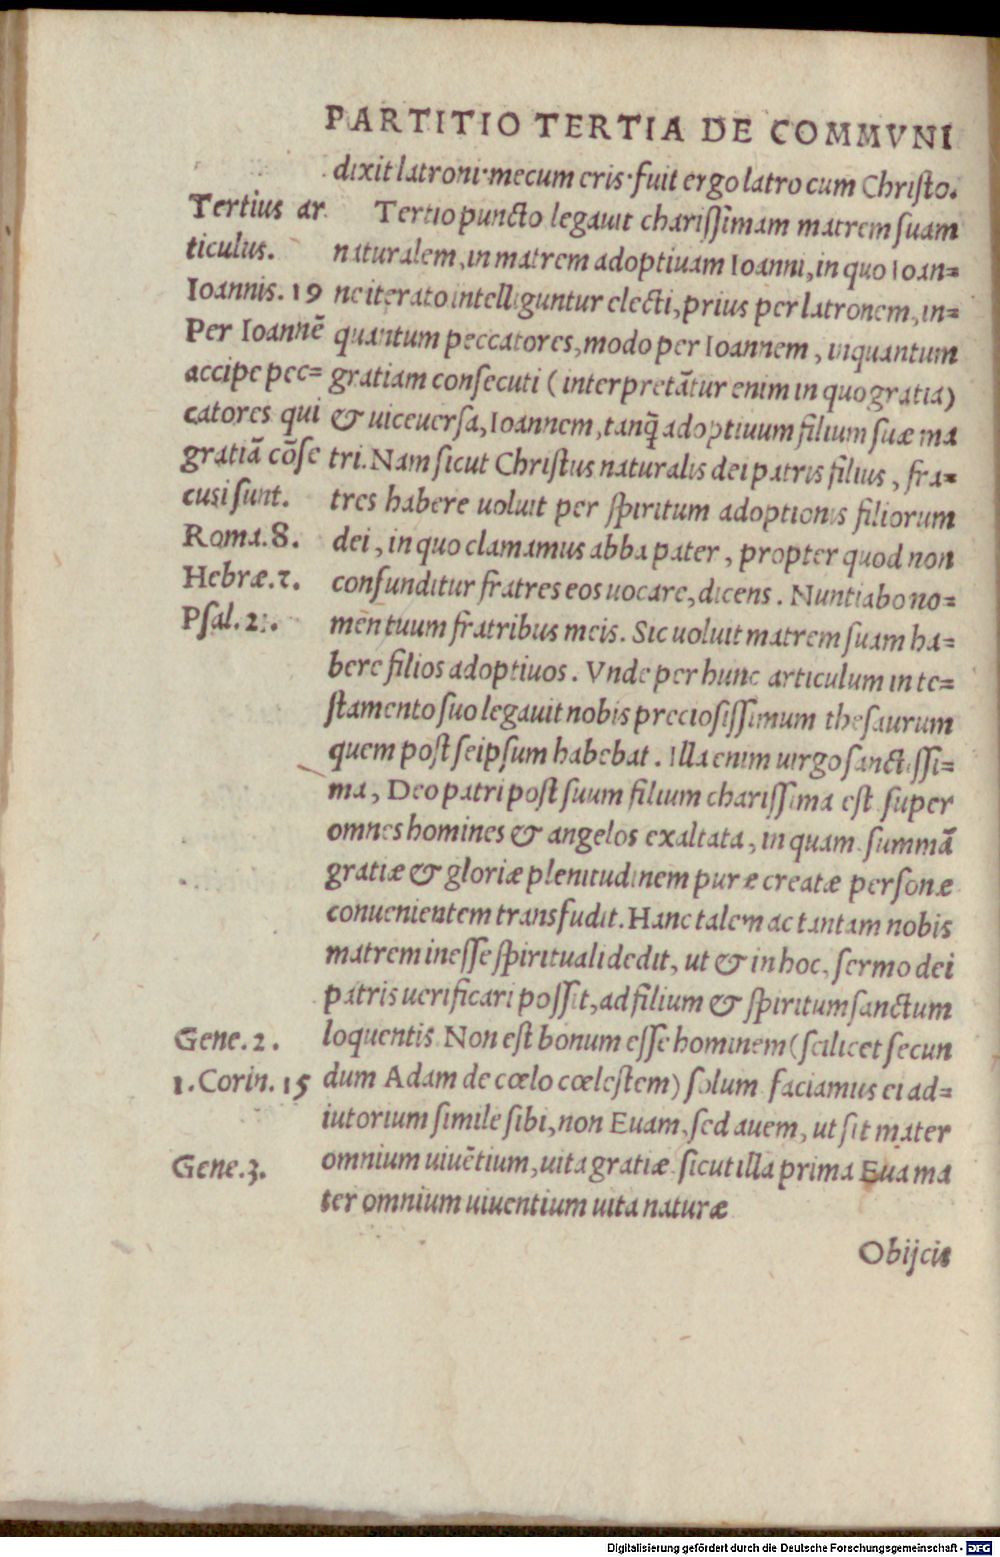 PARTITIO TERTIA DE COMMVNI
dixit latroni·mecum eris·fuit ergo latro cum Christo.
Tertius ar
ticulus.
Ioannis. 19
Per Ioannē
accipe pec=
catores qui
gratiā cōse
cusi sunt.
Roma. 8.
Hebræ. 2.
Psal. 21.
Tertio puncto legauit charissimam matrem suam
naturalem, in matrem adoptiuam Ioanni, in quo Ioan=
ne iterato intelliguntur electi, prius per latronem, in=
quantum peccatores, modo per Ioannem, inquantum
gratiam consecuti (interpretātur enim in quo gratia)
& uiceuersa, Ioannem, tanq̃ adoptiuum filium suæ ma
tri. Nam sicut Christus naturalis dei patris filius, fra=
tres habere uoluit per spiritum adoptionis filiorum
dei, in quo clamamus abba pater, propter quod non
confunditur fratres eos uocare, dicens. Nuntiabo no=
men tuum fratribus meis. Sic uoluit matrem suam ha=
bere filios adoptiuos. Vnde per hunc articulum in te=
stamento suo legauit nobis preciosissimum thesaurum
quem post seipsum habebat. Illa enim uirgo sanctissi=
ma, Deo patri post suum filium charissima est super
omnes homines & angelos exaltata, in quam summā
gratiæ & gloriæ plenitudinem puræ creatæ personæ
conuenientem transfudit. Hanc talem ac tantam nobis
matrem inesse spirituali dedit, ut & in hoc, sermo dei
patris uerificari possit, ad filium & spiritum sanctum
loquentis. Non est bonum esse hominem (scilicet secun
dum Adam de cœlo cœlestem) solum faciamus ei ad=
iutorium simile sibi, non Euam, sed auem, ut sit mater
omnium uiuētium, uita gratiæ sicut illa prima Eua ma
ter omnium uiuentium uita naturæ
Gene. 2.
1. Corin. 15
Gene. 3.
Obijcis
Digitalisierung gefördert durch die Deutsche Forschungsgemeinschaft - DFG